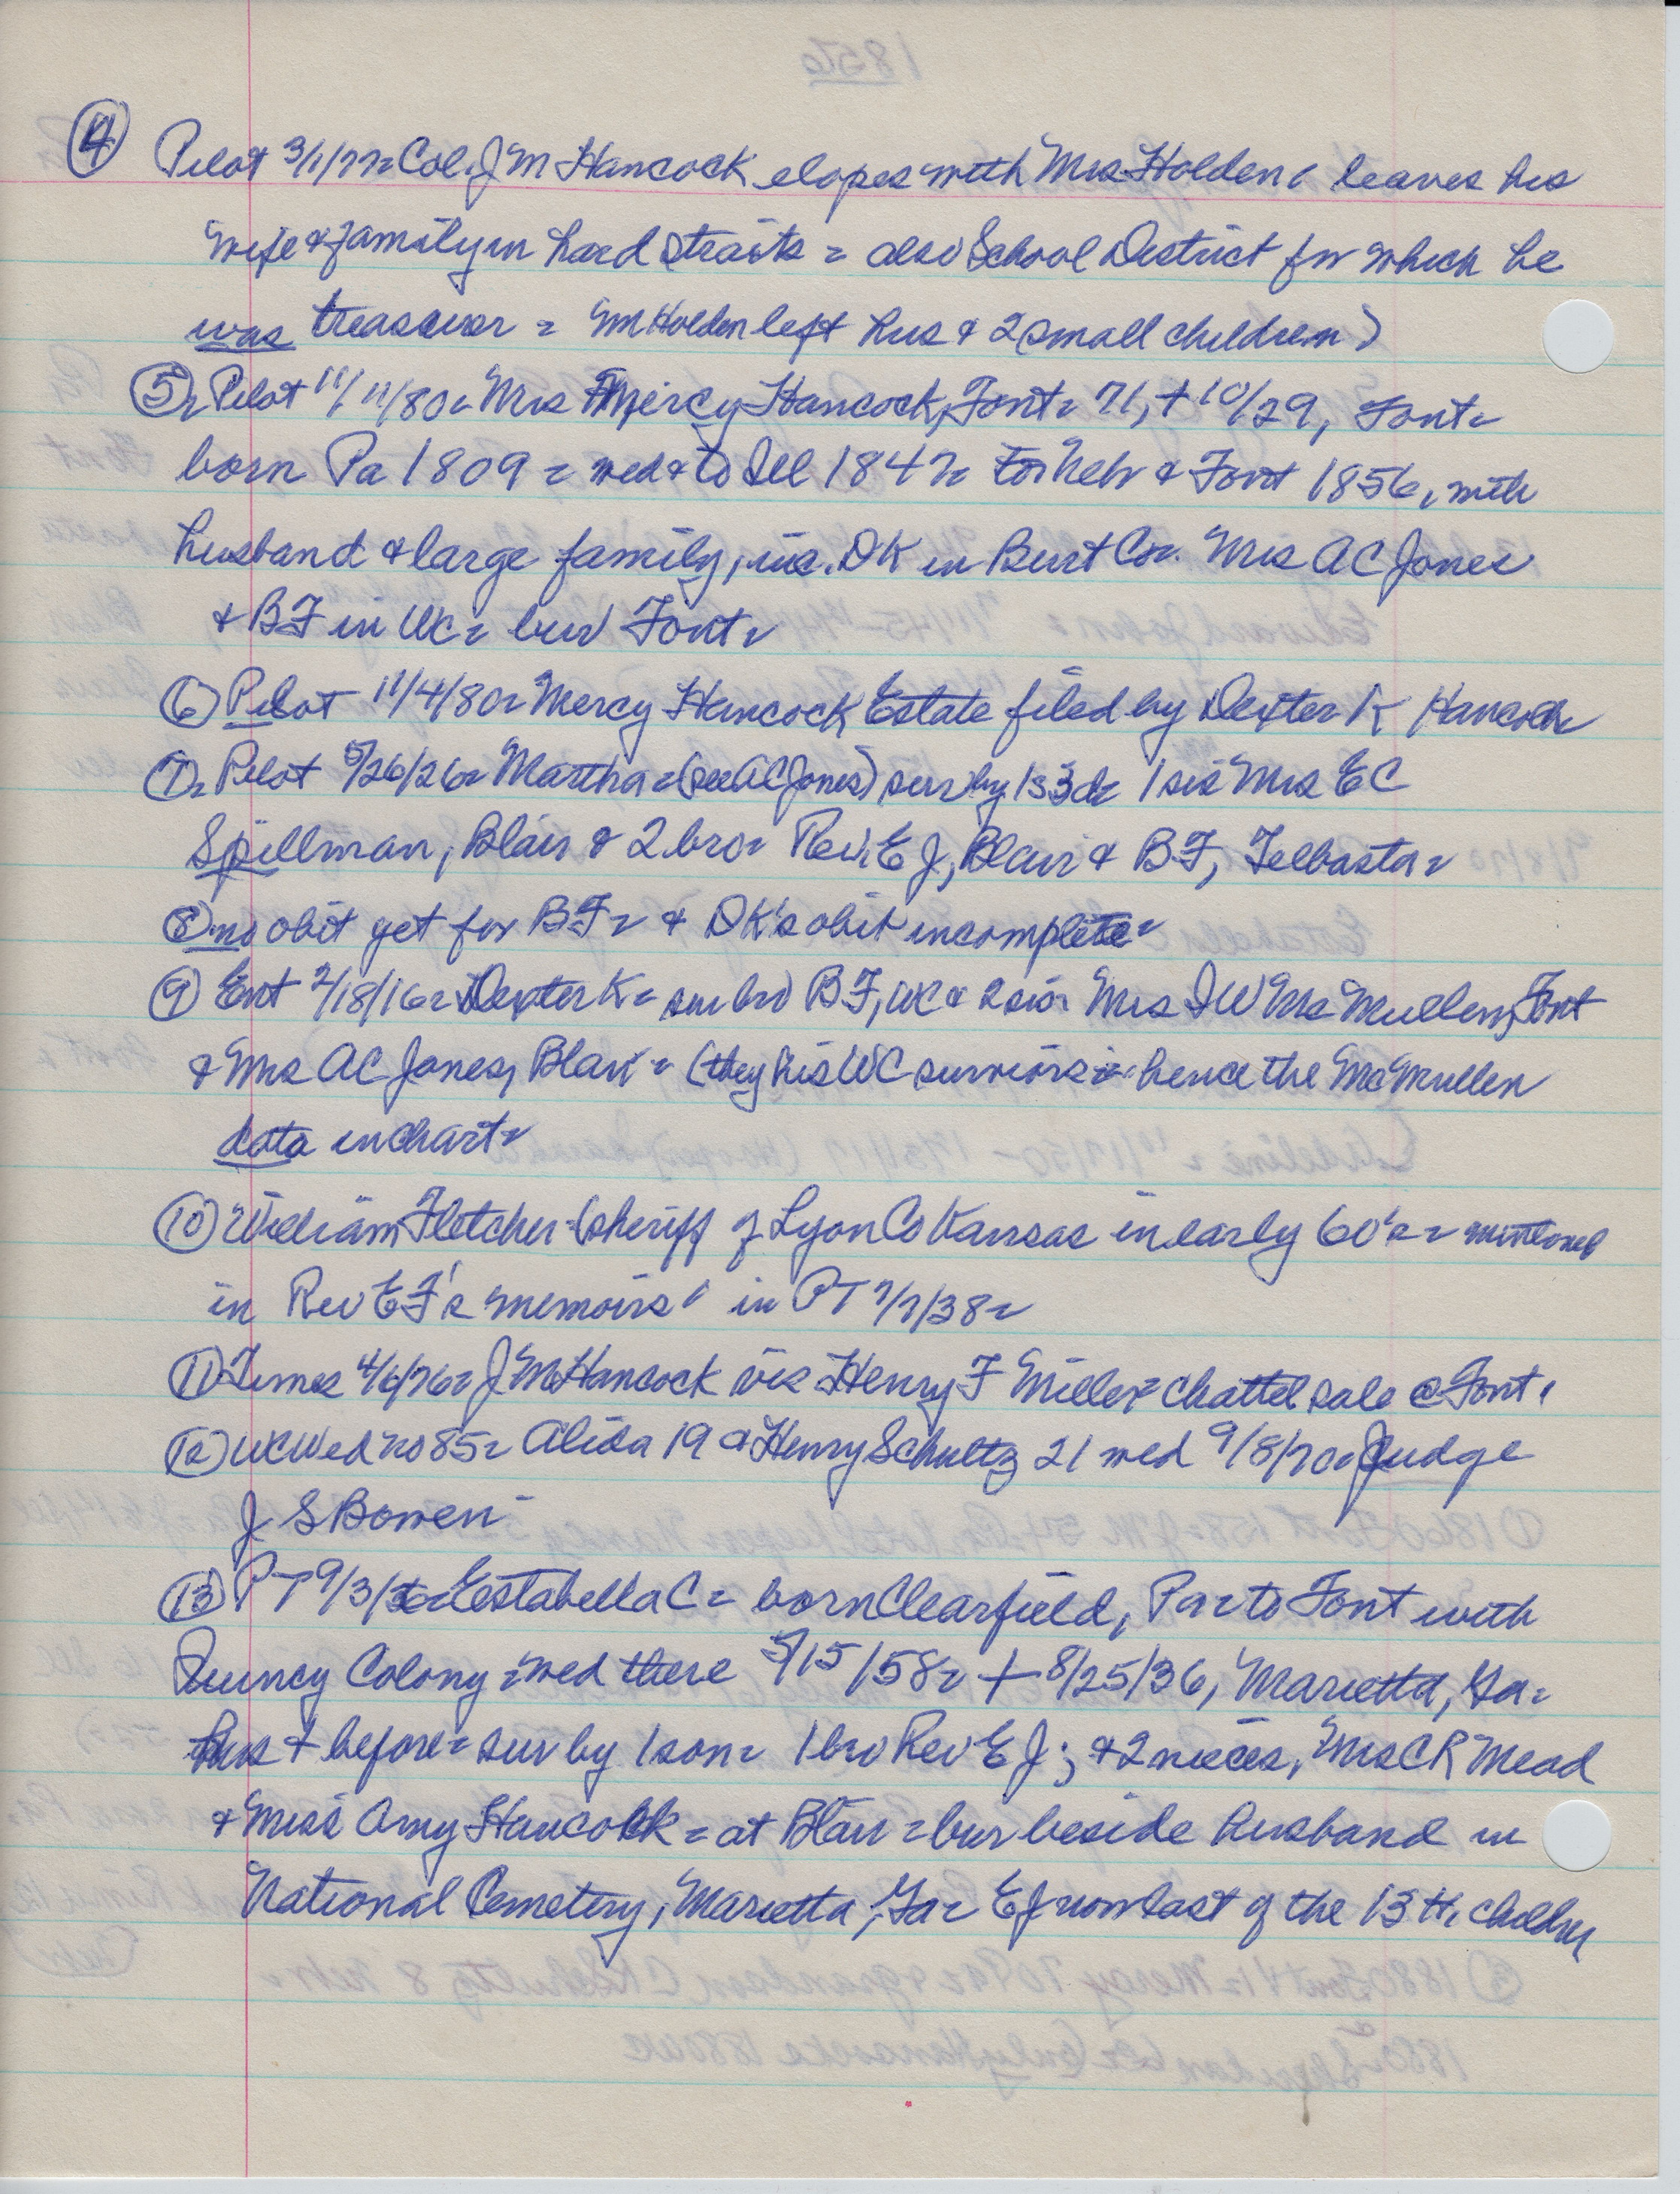 ④ Pilot 3/1/77= Col. J M Hancock elopes with Mrs Holden (leaves his
wife & family in hard straits = also School District for which he
was treasurer = Mrs Holden left hus & 2 small children)
⑤= Pilot 11/11/80= Mrs Mercy Hancock, Font= 71, + 10/29, Font=
born Pa 1809 = wed & to Ill 1847= to Neb & Font 1856, with
husband & large family, inc. DK in Burt Co=. Mrs AC Jones
& BF in WC= bur Font=
⑥ Pilot 11/4/80= Mercy Hancock Estate filed by Dexter K Hancock
⑦= Pilot 5/26/26= Martha= (see AC Jones) sur by 1s 3d= 1 sis Mrs EC
Spillman, Blair & 2 bro= Rev. E J, Blair & BF, Telbasta=
⑧ no obit yet for BF= & DK's obit incomplete=
⑨ Ent 2/18/16= Dexter K= sur bro BF, WC & 2 sis= Mrs I W McMullen, Font
& Mrs AC Jones, Blair = (they his WC survivors = hence the McMullen
data in chart=
⑩ William Fletcher = (sheriff of Lyon Co Kansas in early 60's = mentioned
in Rev EJ's "memoirs" in PT 7/7/38=
⑪ Times 4/6/76= J M Hancock vs Henry F Miller = chattel sale @ Font.
⑫ WC Wed no 85= Alida 19 & Henry Schultz 21 wed 9/8/70= Judge
J S Bowen
⑬ PT 9/3/36= Estabella C = born Clearfield, Pa= to Font with
Quincy Colony = wed there 5/15/58= + 8/25/36, Marietta, Ga=
hus + before = sur by 1 son= 1 bro Rev E J; & 2 nieces, Mrs CR Mead
& Miss Amy Hancock = at Blair = bur beside husband in
National Cemetery, Marietta, Ga= EJ now last of the 13 H. children